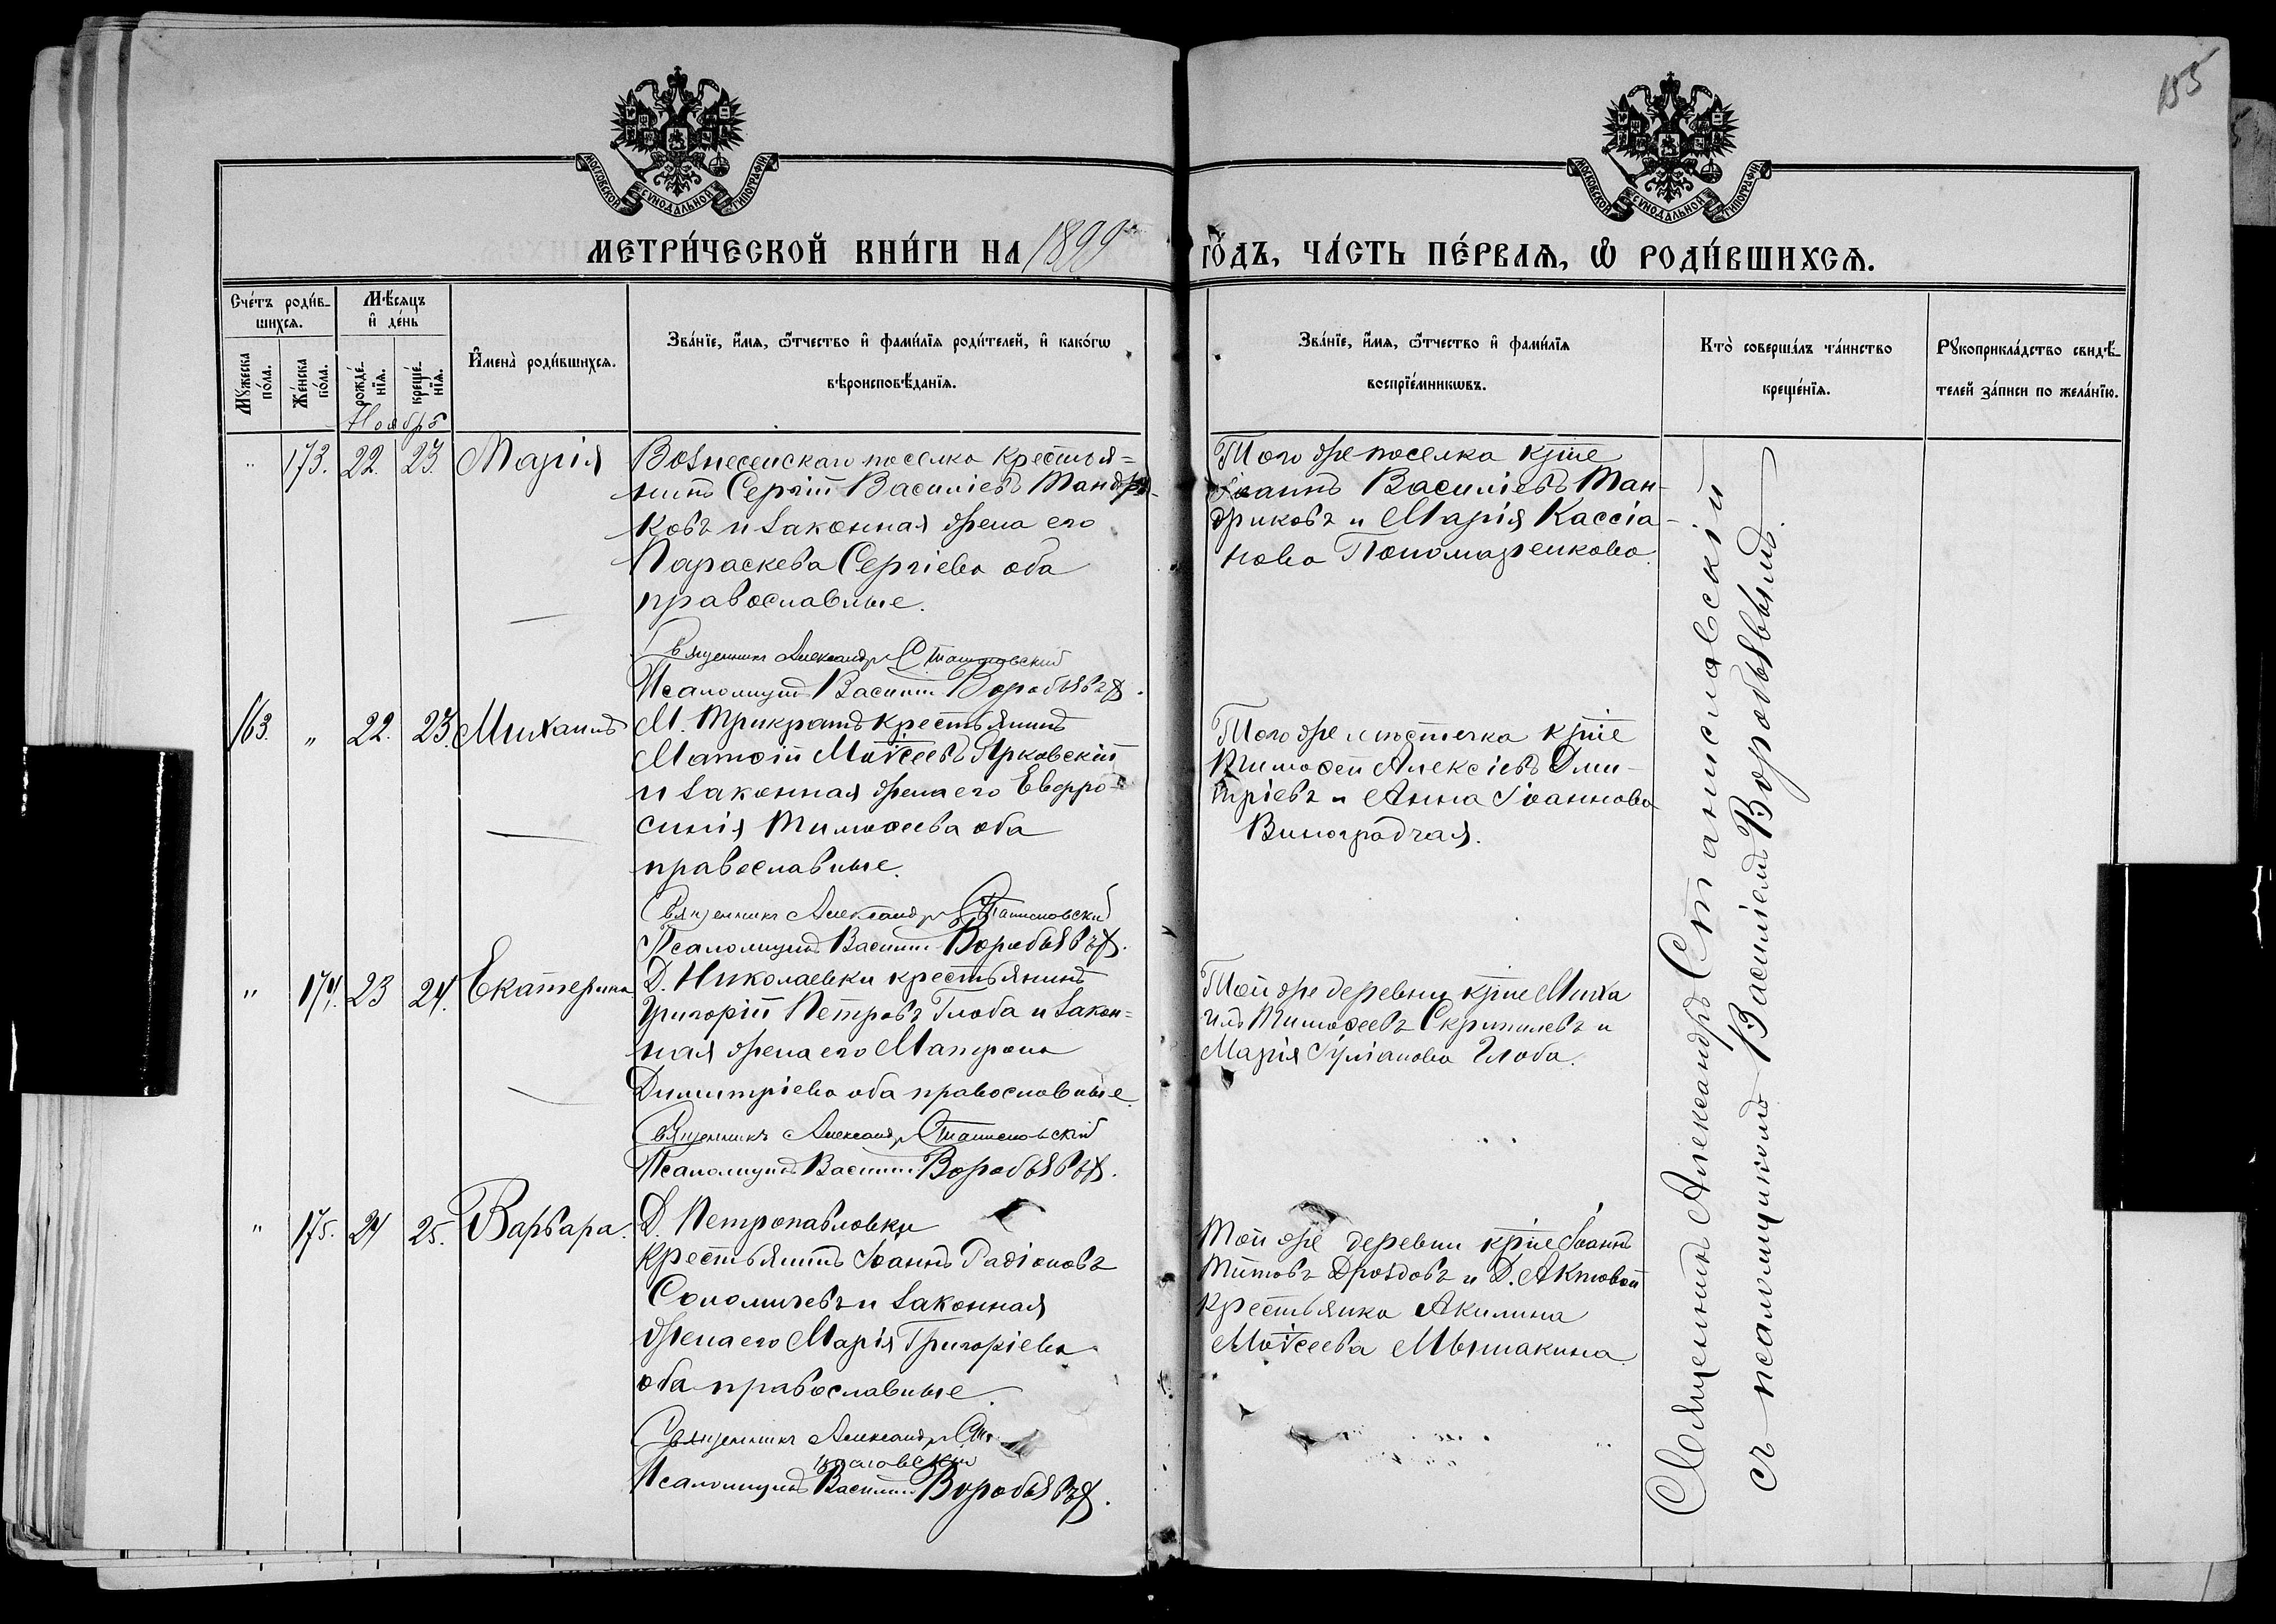 155
МОСКОВСКОЙ СѴНОДАЛЬНОЙ ТИПОГРАФІИ
МОСКОВСКОЙ СѴНОДАЛЬНОЙ ТИПОГРАФІИ
МЕТРИ́ЧЕСКОЙ КНИ́ГИ НА 1899 ГО́ДЪ, ЧА́СТЬ ПЕ́РВАѦ, Ѡ҆ РОДИ́ВШИХСѦ.
Сче́тъ роди́в-
шихсѧ.
Мꙋ́жеска по́ла.
Же́нска по́ла.
Мѣ́сѧцъ и҆ де́нь
рожде́-нїѧ.
креще́-нїѧ.
И҆мена̀ роди́вшихсѧ.
Зва́нїе, и҆́мѧ, ѻ҆́тчество и҆ фами́лїѧ роди́телей, и҆ како́гѡ
вѣроисповѣ́данїѧ.
Зва́нїе, и҆́мѧ, ѻ҆́тчество и҆ фами́лїѧ
воспрїе́мникѡвъ.
Кто̀ соверша́лъ та́инство
креще́нїѧ.
Рꙋкоприкла́дство свидѣ́-
телей за́писи по жела́нїю.
Ноябрь
" 173. 22. 23. Марія
Вознесенскаго поселка крестья=
нинъ Сергій Василіевъ Мандри-
ковъ и законная жена его
Параскева Сергіева оба
православные.
Священникъ Александръ Станиславский
Псаломщикъ Василий Воробьевъ.
Того же поселка кр͠не
Іоаннъ Василіевъ Ман-
дриковъ и Марія Кассіа-
нова Пономаренкова.
163. " 22. 23. Михаилъ
М. Трикратъ крестьянинъ
Матѳій Моѵсеевъ Ярковскій
и законная жена его Евфро-
синія Тимоѳеева оба
православные.
Священникъ Александръ Станиславский
Псаломщикъ Василий Воробьевъ.
Того же мѣстечка кр͠не
Тимоѳей Алексіевъ Дми-
тріевъ и Анна Іоаннова
Виноградчая.
" 174. 23 24. Екатерина
Д. Николаевки крестьянинъ
Григорій Петровъ Глоба и закон=
ная жена его Матрона
Димитріева оба православные.
Священникъ Александръ Станиславский
Псаломщикъ Василий Воробьевъ.
Той же деревни кр͠не Миха
илъ Тимоѳеевъ и
Марія Іуліанова Глоба.
" 175. 24 25. Варвара.
Д. Петропавловки
крестьянинъ Іоаннъ Радіоновъ
и законная
жена его Марія Григоріева
оба православные.
Священникъ Александръ Ста
ниславский
Псаломщикъ Василий Воробьевъ.
Той же деревни кр͠не Іоаннъ
Титовъ Дроздовъ и Д. Актовой
крестьянка Акилина
Моѵсеева Мышакина.
Священникъ Александръ Станиславскій
съ псаломщикомъ Василіемъ Воробьевымъ.